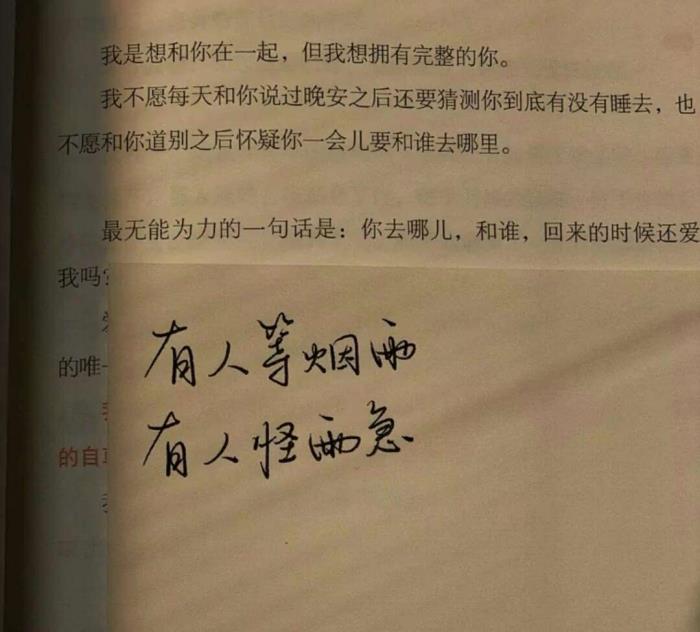 我是想和你在一起，但我想拥有完整的你。
我不愿每天和你说过晚安之后还要猜测你到底有没有睡去，也
不愿和你道别之后怀疑你一会儿要和谁去哪里。
最无能为力的一句话是：你去哪儿，和谁，回来的时候还爱
我吗？
有人等烟雨
的唯一
有人怪雨急
的自